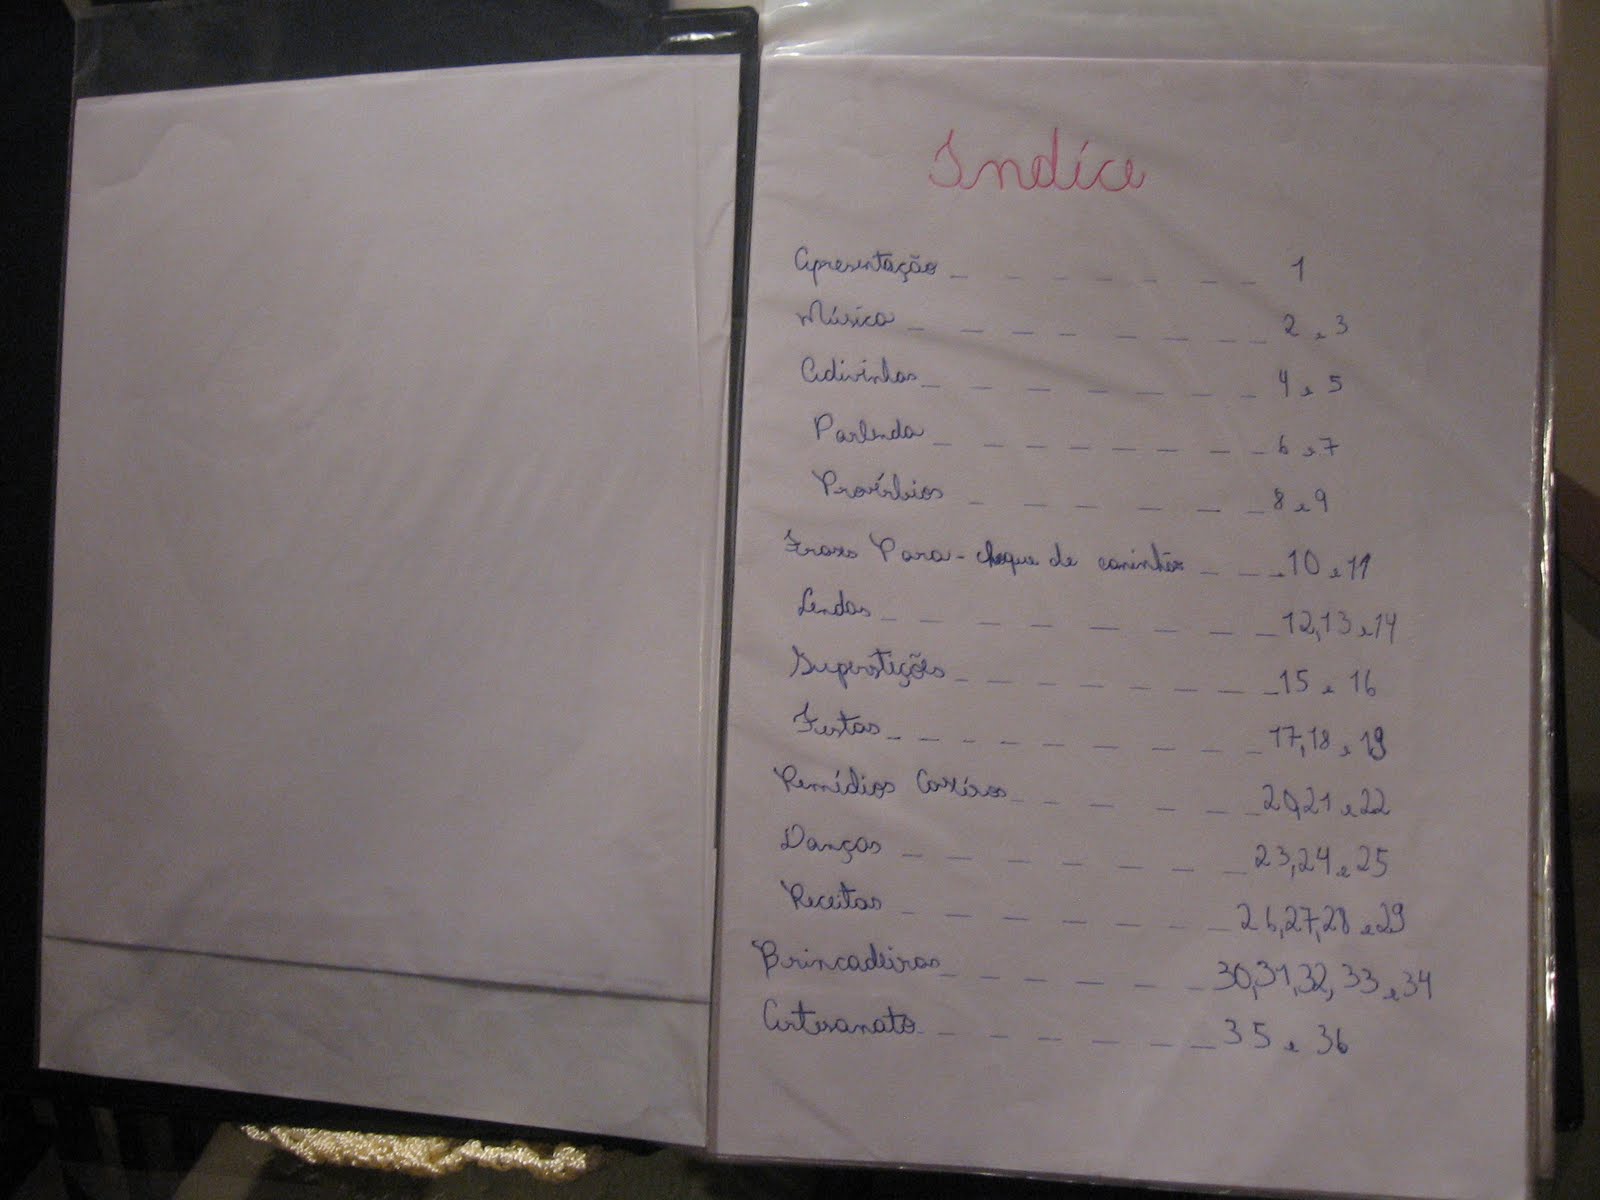 Indíce
Apresentação _ _ _ _ _ _ _ _ 1
Música _ _ _ _ _ _ _ _ 2 e 3
Adivinhas _ _ _ _ _ _ _ _ 4 e 5
Parlenda _ _ _ _ _ _ _ _ 6 e 7
Provérbios _ _ _ _ _ _ _ 8 e 9
Frases Para-choque de caminhão _ _ _ 10 e 11
Lendas _ _ _ _ _ _ _ _ 12,13 e 14
Superstições _ _ _ _ _ _ _ _ 15 e 16
Festas _ _ _ _ _ _ _ _ _ 17,18 e 19
Remédios Caseiros _ _ _ _ _ _ 20,21 e 22
Danças _ _ _ _ _ _ _ _ 23,24 e 25
Receitas _ _ _ _ _ _ _ _ 26,27,28 e 29
Brincadeiras _ _ _ _ _ _ _ 30,31,32, 33 e 34
Artesanato _ _ _ _ _ _ _ 35 e 36